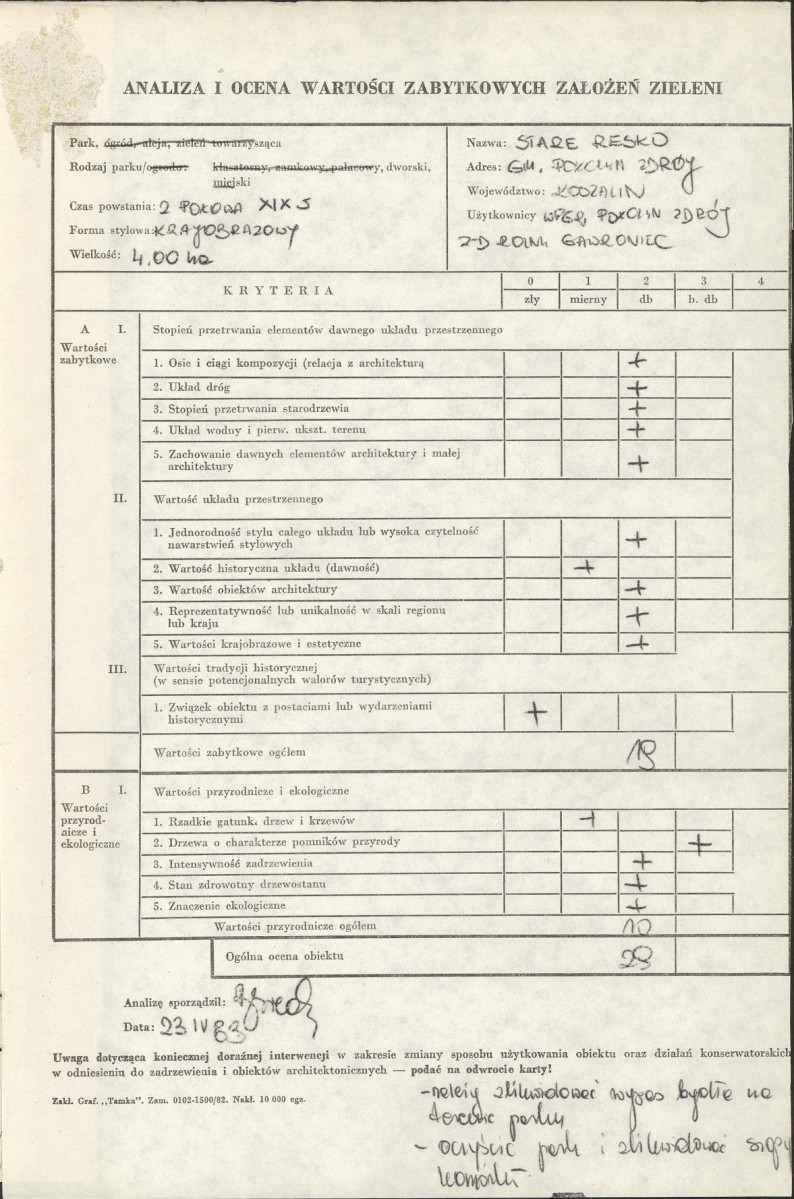 ANALIZA I OCENA WARTOŚCI ZABYTKOWYCH ZAŁOŻEŃ ZIELENI
Park, ogród, aleja, zieleń towarzysząca
Rodzaj parku/ogrodu: klasztorny, zamkowy, pałacowy, dworski,
miejski
Czas powstania: 2 POŁOWA XIX S
Forma stylowa: KRAJOBRAZOWY
Wielkość: 4.00 ha
Nazwa: STARE RESKO
Adres: GM. POŁCZYN ZDRÓJ
Województwo: KOSZALIN
Użytkownicy WPGR, POŁCZYN ZDRÓJ
Z-D ROLNY GAWRONIEC
KRYTERIA
0 1 2 3 4
zły mierny db b. db
A I. Stopień przetrwania elementów dawnego układu przestrzennego
Wartości
zabytkowe
1. Osie i ciągi kompozycji (relacja z architekturą +
2. Układ dróg +
3. Stopień przetrwania starodrzewia +
4. Układ wodny i pierw. ukszt. terenu +
5. Zachowanie dawnych elementów architektury i małej
architektury +
II. Wartość układu przestrzennego
1. Jednorodność stylu całego układu lub wysoka czytelność
nawarstwień stylowych +
2. Wartość historyczna układu (dawność) +
3. Wartość obiektów architektury +
4. Reprezentatywność lub unikalność w skali regionu
lub kraju +
5. Wartości krajobrazowe i estetyczne +
III. Wartości tradycji historycznej
(w sensie potencjonalnych walorów turystycznych)
1. Związek obiektu z postaciami lub wydarzeniami
historycznymi +
Wartości zabytkowe ogółem 19
B I. Wartości przyrodnicze i ekologiczne
Wartości
przyrod-
nicze i
ekologiczne
1. Rzadkie gatunki drzew i krzewów +
2. Drzewa o charakterze pomników przyrody +
3. Intensywność zadrzewienia +
4. Stan zdrowotny drzewostanu +
5. Znaczenie ekologiczne +
Wartości przyrodnicze ogółem 10
Ogólna ocena obiektu 29
Analizę sporządził:
Data: 23 IV 83
Uwaga dotycząca koniecznej doraźnej interwencji w zakresie zmiany sposobu użytkowania obiektu oraz działań konserwatorskich
w odniesieniu do zadrzewienia i obiektów architektonicznych — podać na odwrocie karty!
Zakł. Graf. „Tamka". Zam. 0102-1500/82. Nakł. 10 000 egz.
- należy zlikwidować wypas bydła na
terenie parku
- oczyścić park i zlikwidować szopy
komórki